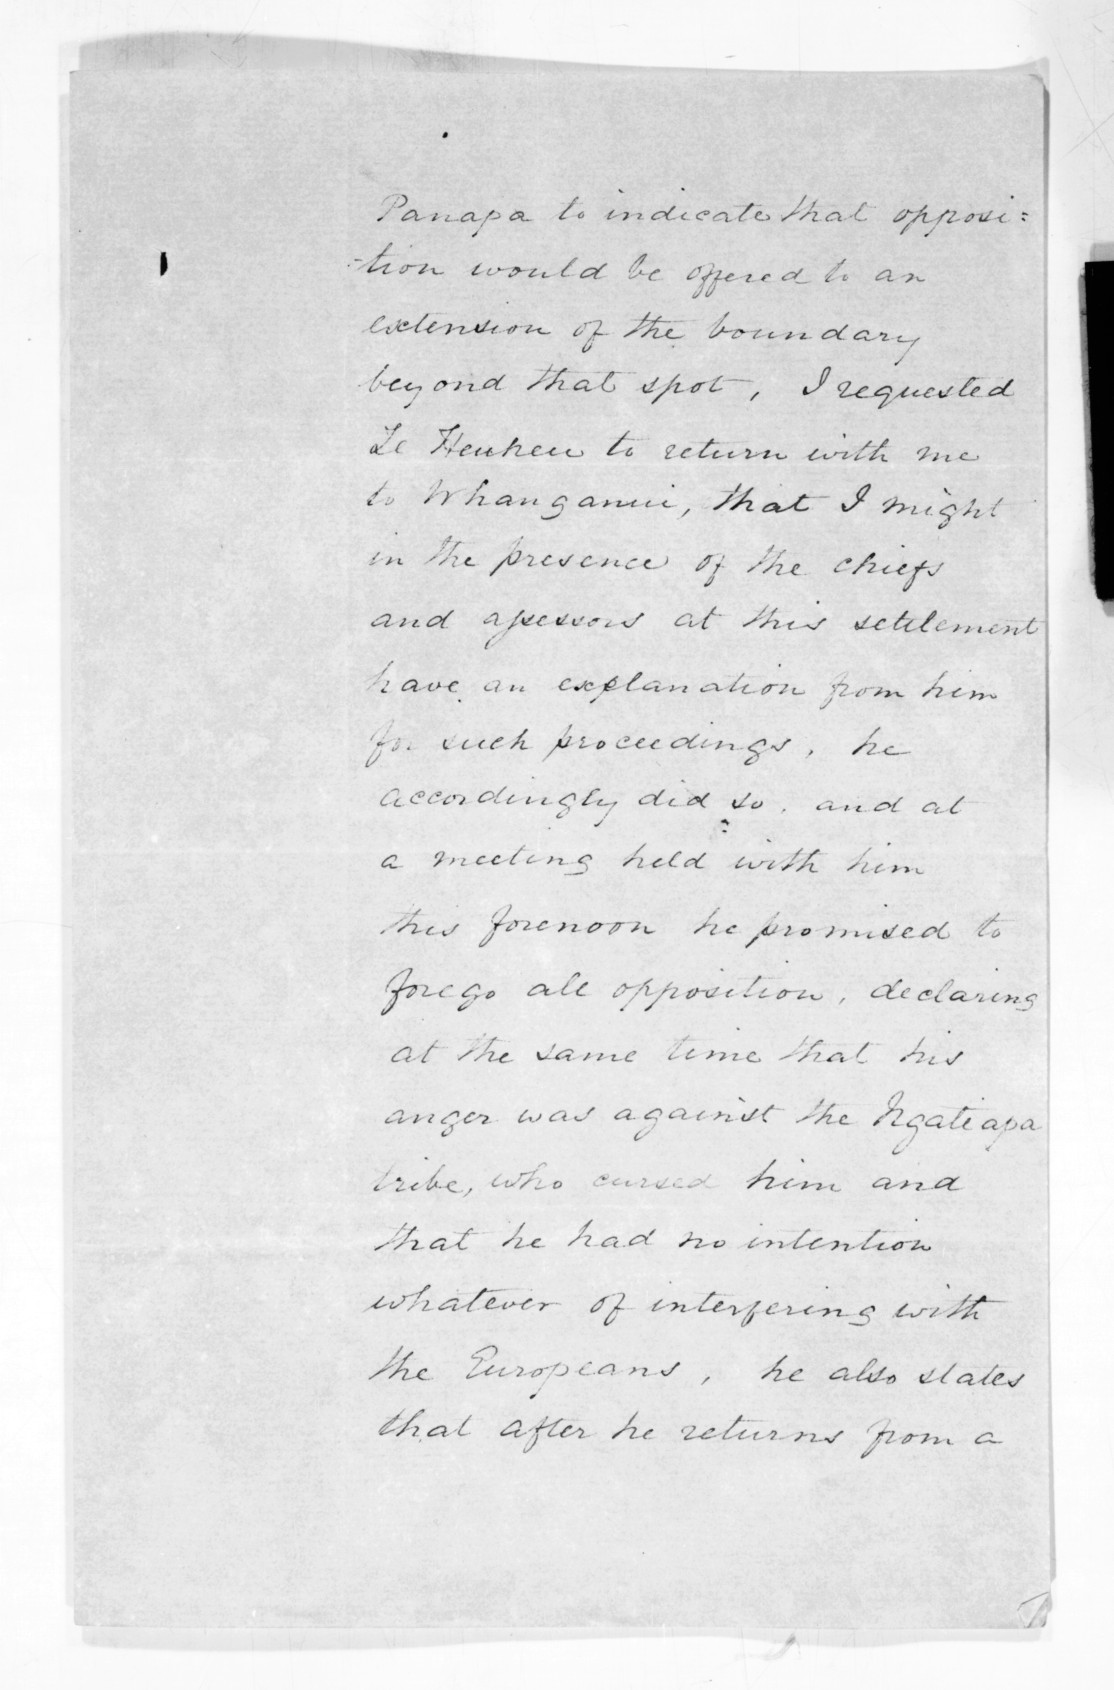 Panapa to indicate that opposi=
-tion would be offered to an
extension of the boundary
beyond that spot, I requested
Te Heuheu to return with me
to Whanganui, that I might
in the presence of the chiefs
and assessors at this settlement
have an explanation from him
for such proceedings, he
accordingly did so, and at
a meeting held with him
this forenoon he promised to
forego all opposition, declaring
at the same time that his
anger was against the Ngatiapa
tribe, who cursed him and
that he had no intention
whatever of interfering with
the Europeans, he also states
that after he returns from a